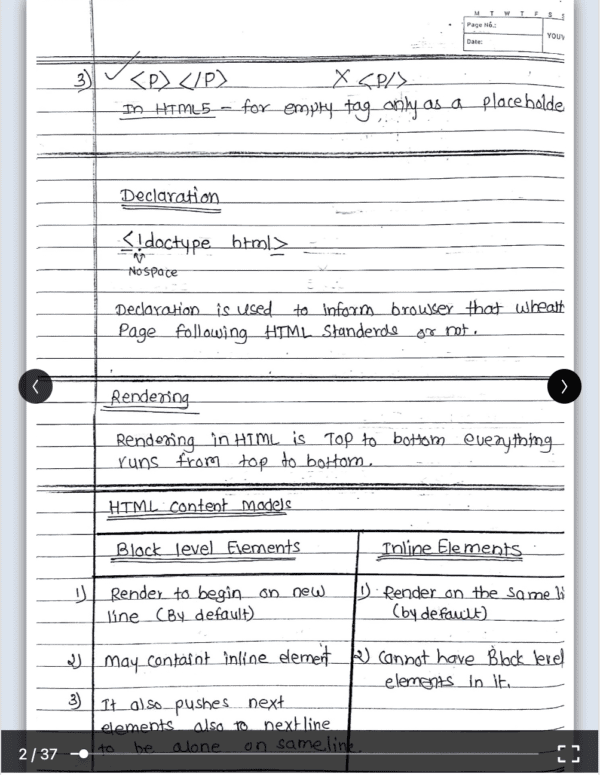 M T W T F S S
Page No.:
Date:
YOUV
3) ✓ <P> </P> X <P/>
In HTML5 - for empty tag only as a placeholde
Declaration
<!doctype html>
No space
Declaration is used to inform browser that wheath
Page following HTML Standerds or not.
Rendering
Rendering in HTML is Top to bottom everything
runs from top to bottom.
HTML Content Models
Block level Elements
Inline Elements
1) Render to begin on new
line (By default)
1) Render on the same li
(by default)
2) May containt inline element
2) Cannot have Block level
elements in it.
3) It also pushes next
elements also to next line
to be alone on same line.
2 / 37